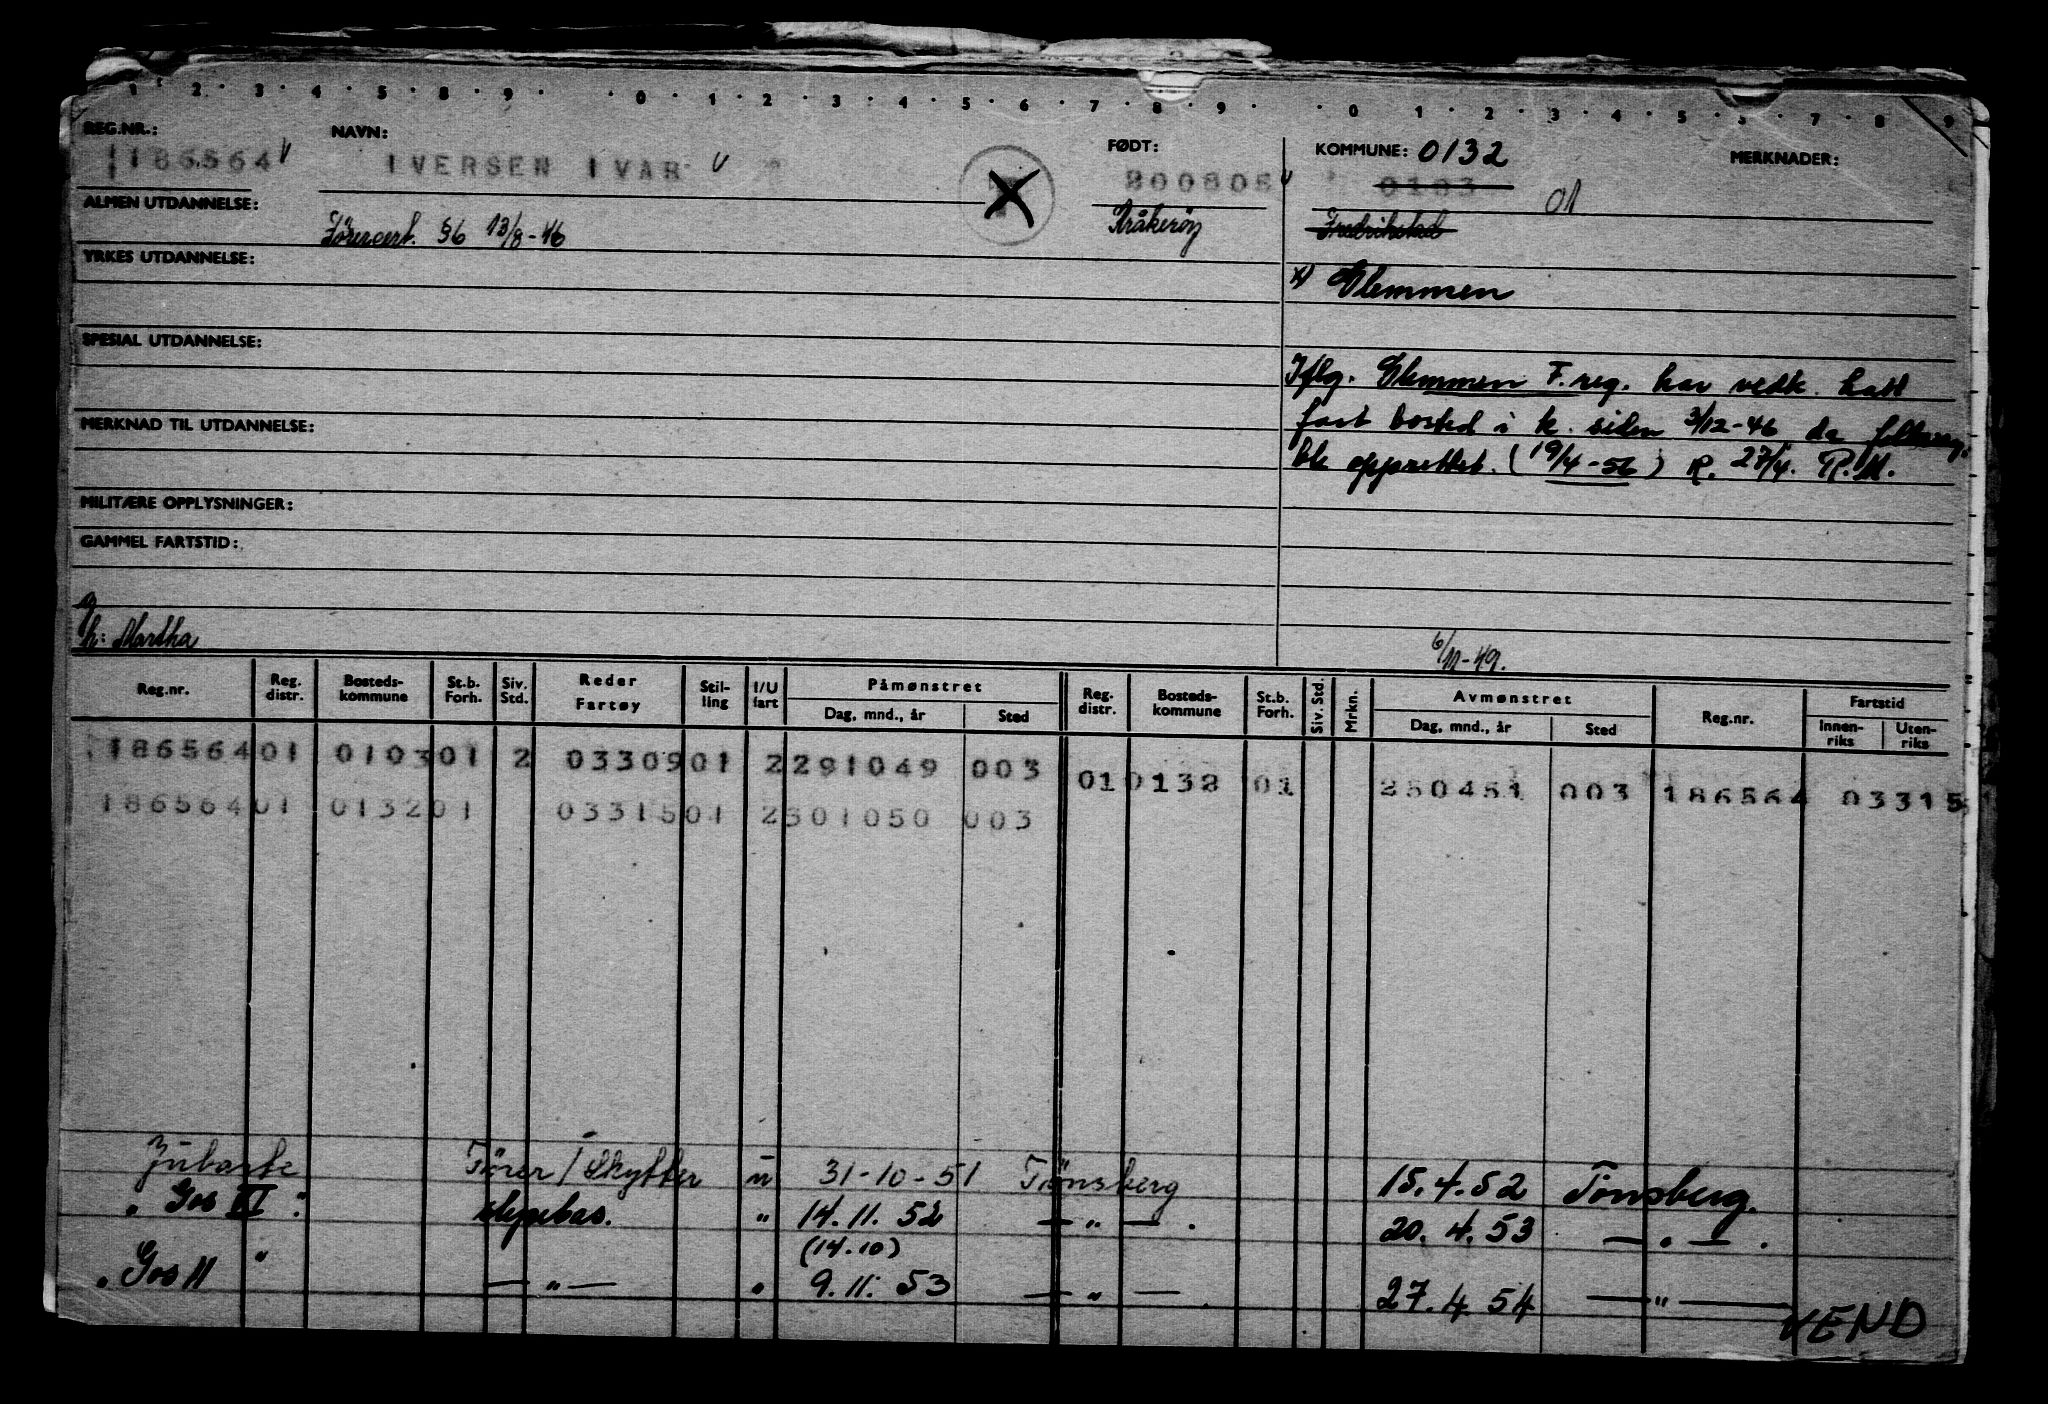 1 2 3 4 5 8 9 0 1 2 3 4 5 6 7 8 9 0 1 2 3 4 5 7 8 9
REG.NR.: NAVN: FØDT: KOMMUNE: 0132 MERKNADER:
186564 IVERSEN IVAR 0103 01
ALMEN UTDANNELSE: Førercert. §6 13/8-46 Kråkerøy Fredrikstad
YRKES UTDANNELSE: x) Glemmen
SPESIAL UTDANNELSE:
Iflg. Glemmen F.reg. har vedk. hatt
MERKNAD TIL UTDANNELSE: fast bosted i k. siden 3/12-46 da folkereg.
ble opprettet. (19/4-56) R. 27/4. R.M.
MILITÆRE OPPLYSNINGER:
GAMMEL FARTSTID:
h: Martha 6/11-49.
Reg.nr. Reg. distr. Bosteds- kommune St.b. Forh. Siv. Std. Reder Fartøy Stil- ling I/U fart Påmønstret Dag, mnd., år Sted Reg. distr. Bosteds- kommune St.b. Forh. Siv. Std. Mrkn. Avmønstret Dag, mnd., år Sted Reg.nr. Fartstid Innen- riks Uten- riks
186564 01 0103 01 2 03309 01 2 291049 003 01 0132 01 250451 003 186564 03315
186564 01 0132 01 03315 01 2 301050 003
Jubarte Fører/Skytter u 31-10-51 Tönsberg 15.4.52 Tönsberg.
" Gos " slepebas. " 14.11.52 — " — . 20.4.53 — " — .
(14.10)
" Gos 11 " — " — " 9.11.53 — " — . 27.4.54 — " —
VEND